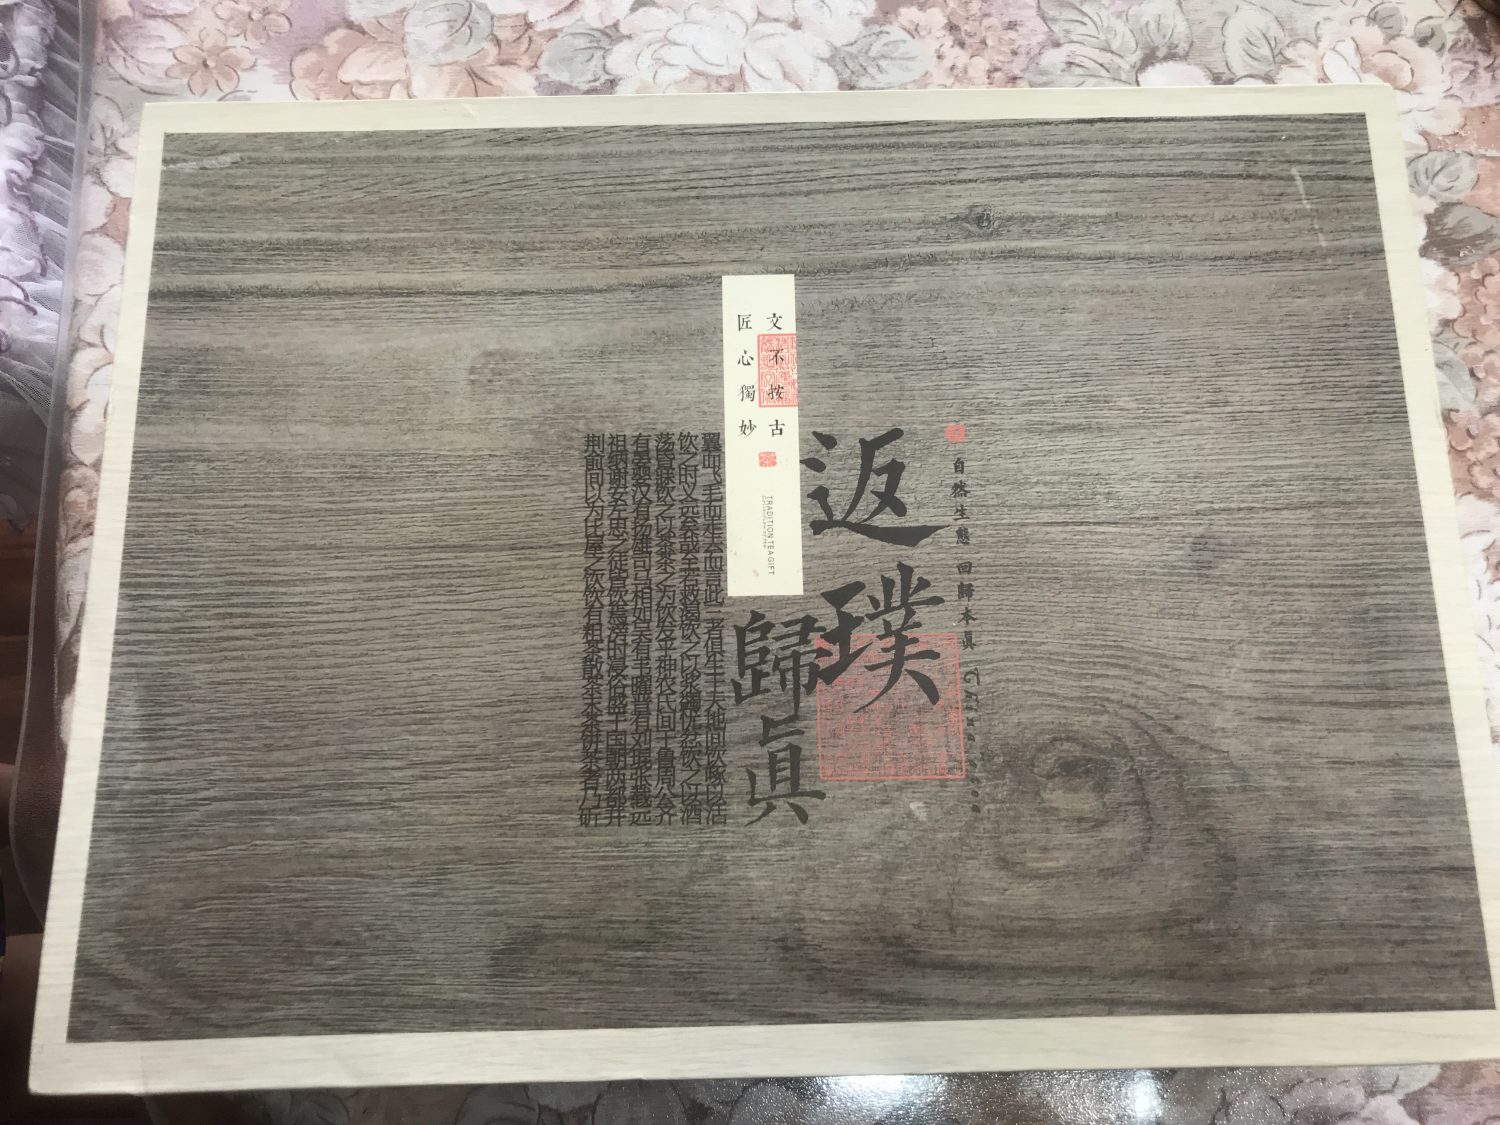 自然生態 回歸本眞
返璞
歸眞
文不按古
匠心獨妙
茶
TRADITION TEA GIFT
翼而飞毛而走去而言此三者俱生于天地间饮啄以活
饮之时义远矣哉至若救渴饮之以浆蠲忧忿饮之以酒
荡昏寐饮之以茶茶之为饮发乎神农氏间于鲁周公齐
有晏婴汉有扬雄司马相如吴有韦曜晋有刘琨张载远
祖纳谢安左思之徒皆饮焉滂时浸俗盛于国朝两都并
荆俞间以为比屋之饮饮有粗茶散茶末茶饼茶者乃斫